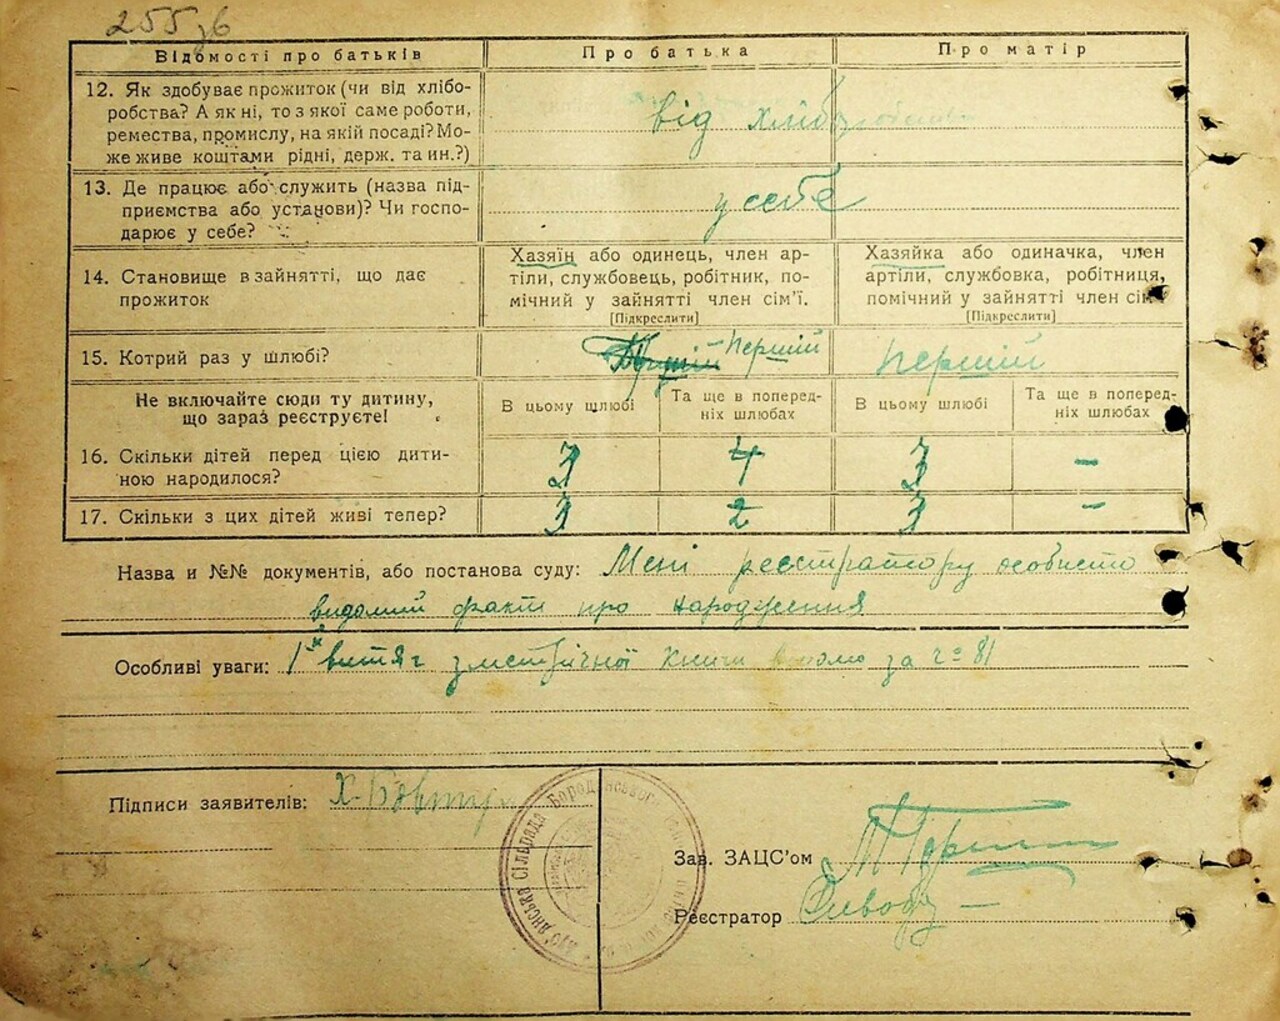 255зв
Відомості про батьків
Про батька
Про матір
12. Як здобуває прожиток (чи від хлібо-
робства? А як ні, то з якої саме роботи,
ремества, промислу, на якій посаді? Мо-
же живе коштами рідні, держ. та ин.?)
від хліборобства
13. Де працює або служить (назва під-
приємства або установи)? Чи госпо-
дарює у себе?
у себе
14. Становище в зайнятті, що дає
прожиток
Хазяїн або одинець, член ар-
тіли, службовець, робітник, по-
мічний у зайнятті член сім'ї.
[Підкреслити]
Хазяйка або одиначка, член
артіли, службовка, робітниця,
помічний у зайнятті член сім'ї
[Підкреслити]
15. Котрий раз у шлюбі?
Перший
перший
Не включайте сюди ту дитину,
що зараз реєструєте!
В цьому шлюбі
Та ще в поперед-
ніх шлюбах
В цьому шлюбі
Та ще в поперед-
ніх шлюбах
16. Скільки дітей перед цією дити-
ною народилося?
3 4 3 –
17. Скільки з цих дітей живі тепер?
3 2 3 –
Назва и №№ документів, або постанова суду: Мені реєстратору особисто
видомий факт про народження
Особливі уваги: витяг з метричної книги за ч° 81
Підписи заявителів: Х.
сілрада Бородянського
Зав. ЗАЦС'ом
Реєстратор